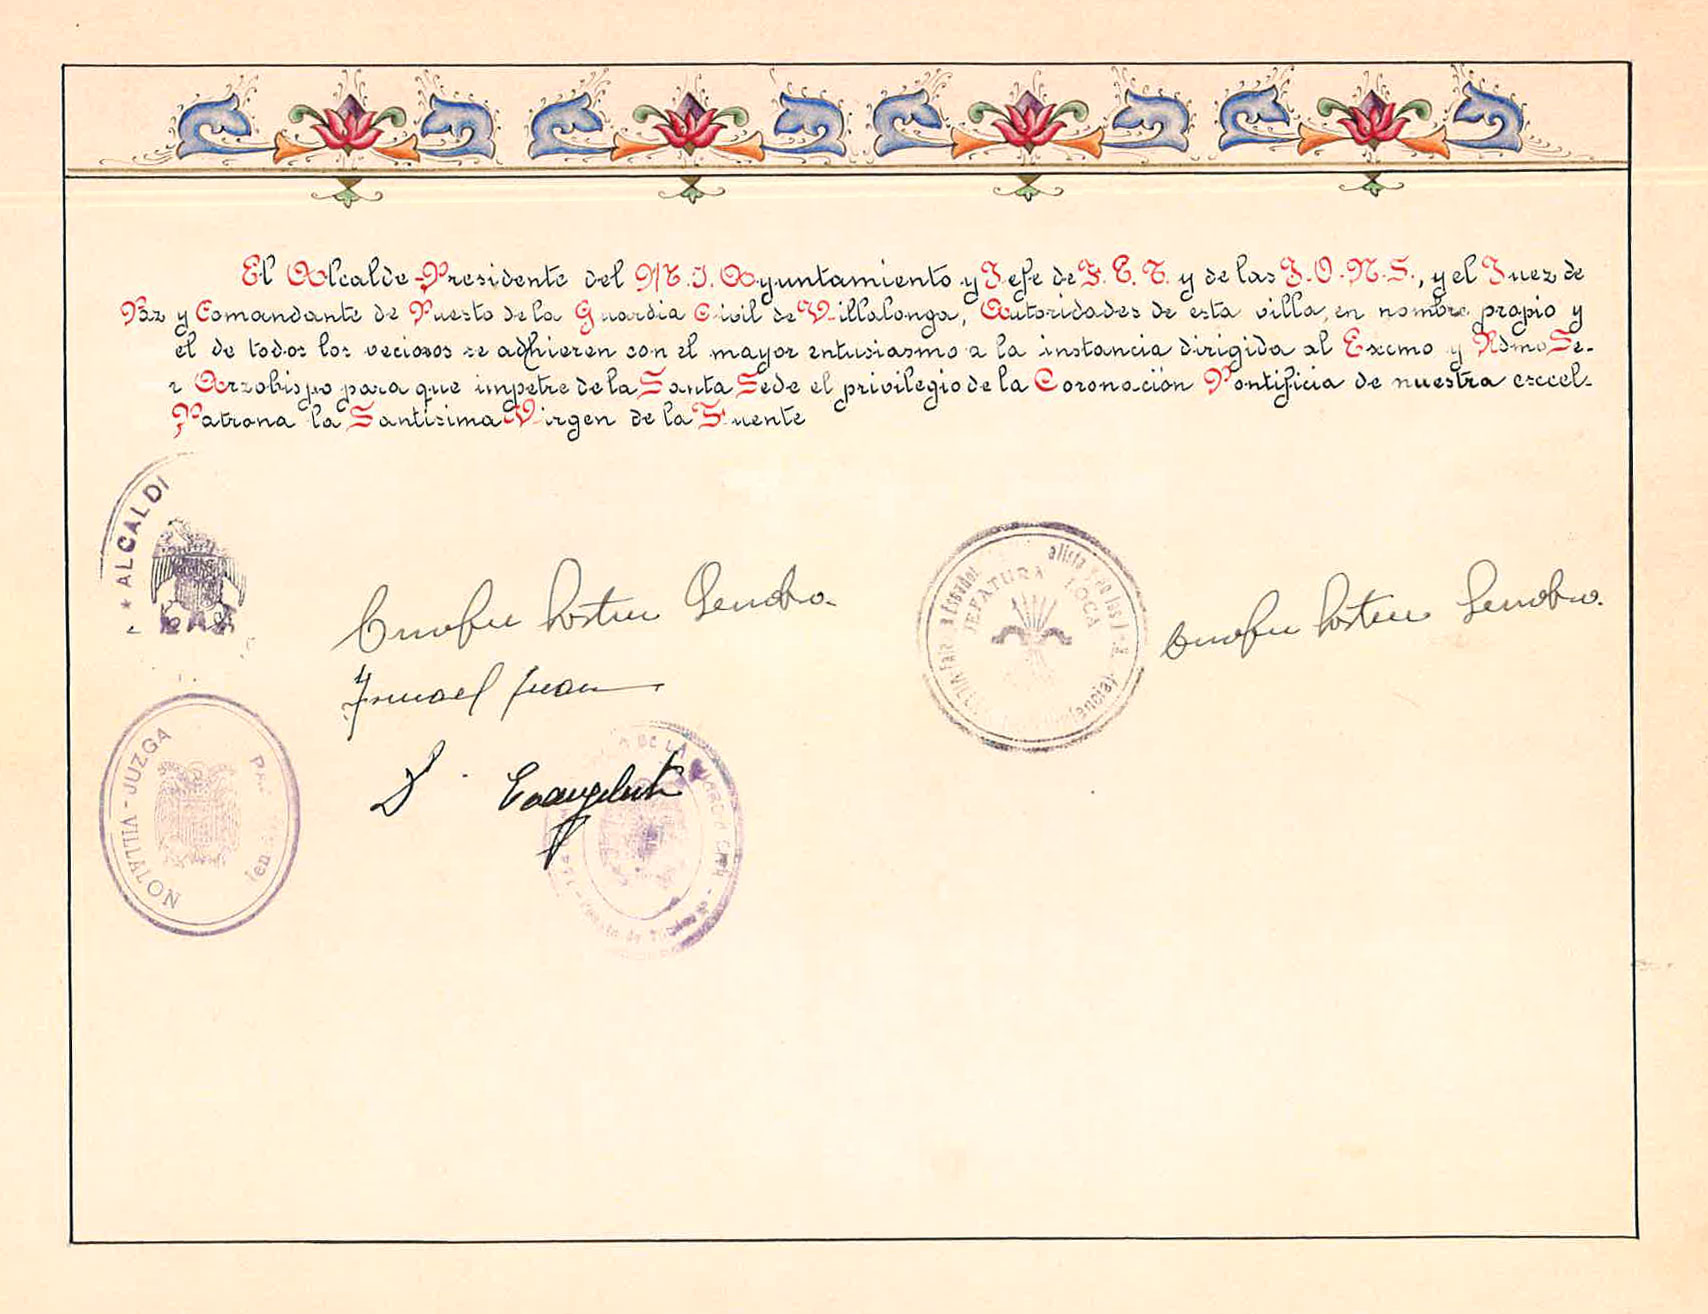 El Alcalde-Presidente del M.I. Ayuntamiento y Jefe de F.E.T. y de las J.O.N.S., y el Juez de
Paz y Comandante de Puesto de la Guardia Civil de Villalonga, Autoridades de esta villa, en nombre propio y
el de todos los vecinos se adhieren con el mayor entusiasmo a la instancia dirigida al Excmo y Rdmo Se-
r Arzobispo para que impetre de la Santa Sede el privilegio de la Coronación Pontificia de nuestra exccel-
Patrona la Santísima Virgen de la Fuente
* ALCALDI
JEFATURA LOCA
Ismael Juan
VILLALLON - JUZGA
D. Evangelista
DE LA